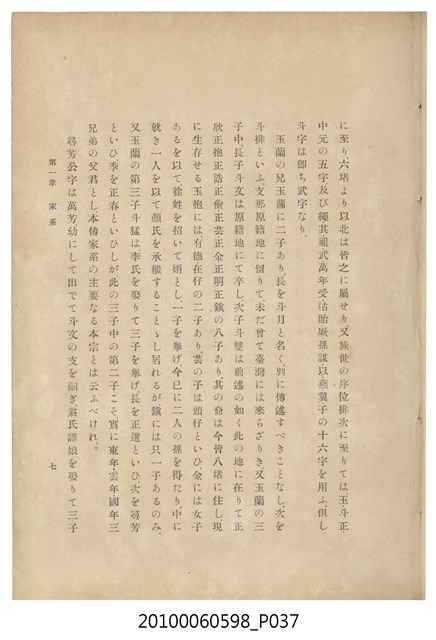 に至り六堵より以北は皆之に屬せり又族世の序位排次に至りては玉斗正
中元の五字及び繩其祖武萬年受祜貽厥孫謀以燕翼子の十六字を用ふ、但し
斗字は卽ち武字なり。
玉蘭の兄玉蒲に二子あり、長を斗月と名く、別に傳述すべきことなし、次を
斗排といふ、支那原籍地に留りて未だ曾て臺灣には來らざりき、又玉蘭の三
子中、長子斗文は原籍地にて卒し、次子斗雙は前述の如く此の地に在りて正
欣正抱正誥正儉正芸正金正明正鎮の八子あり其の裔は今皆八堵に住し、現
に生存せる玉抱には、有德、在仔の二子あり、芸の子は頭仔といひ、金には女子
あるを以て徐姓を招いて婿とし一子を擧げ今已に二人の孫を得たり、中に
就き一人を以て顏氏を承繼することゝし居れるが鎮には只一子あるのみ、
又玉蘭の第三子斗猛は李氏を娶りて三子を擧げ長を正選といひ次を尋芳
といひ、季を正春といひしが此の三子中の第二子こそ、實に東年雲年國年三
兄弟の父君とし本傳家系の主要なる本宗とは云ふべけれ。
尋芳公字は萬芳幼にして出でて斗文の支を嗣ぎ翁氏謹娘を娶りて三子
第一章 家系
七
20100060598_P037